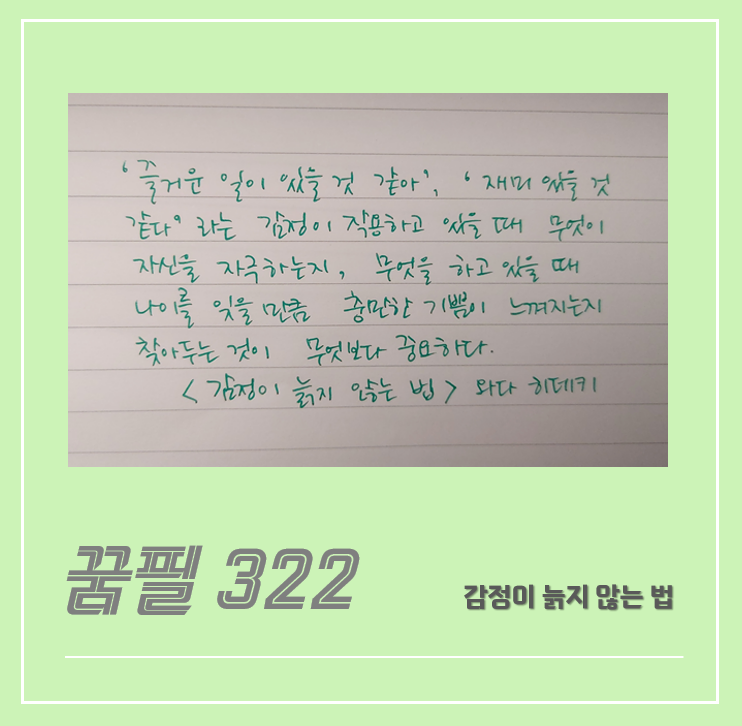 '즐거운 일이 있을 것 같아', '재미 있을 것
같다' 라는 감정이 작용하고 있을 때 무엇이
자신을 자극하는지, 무엇을 하고 있을 때
나이를 잊을 만큼 충만한 기쁨이 느껴지는지
찾아두는 것이 무엇보다 중요하다.
<감정이 늙지 않는 법> 와다 히데키
꿈필 322
감정이 늙지 않는 법